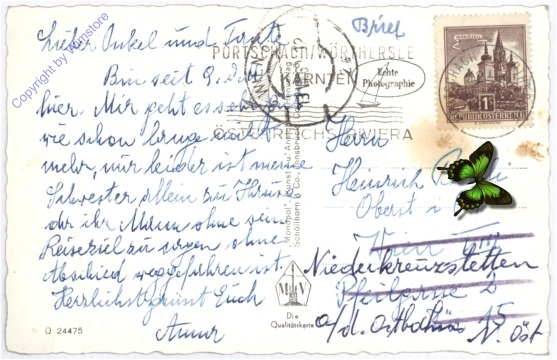 Lieber Onkel und Tante
Bin seit 9. Juli
hier. Mir geht es sehr gut
wie schon lange nicht
mehr, nur leider ist meine
Schwester allein zu Hause
da ihr Mann ohne sein
Reiseziel zu sagen ohne
Abschied weggefahren ist.
Herzlichst grüsst Euch
Q 24475
Copyright by wumstore
Brief
PÖRTSCHACH/WÖRTHERSEE
KÄRNTEN
ÖSTERREICHS RIVIERA
Echte
Photographie
1S
REPUBLIK ÖSTERREICH
"Monopol", Kunst u.
Schöllhorn & Co., Innsbruck
M V
Die
Qualitätskarte
Herrn
Heinrich
Oberst i
Wien
Pfeilgasse 2
Niederkreuzstetten
a/d. Ostbahn
N. Öst